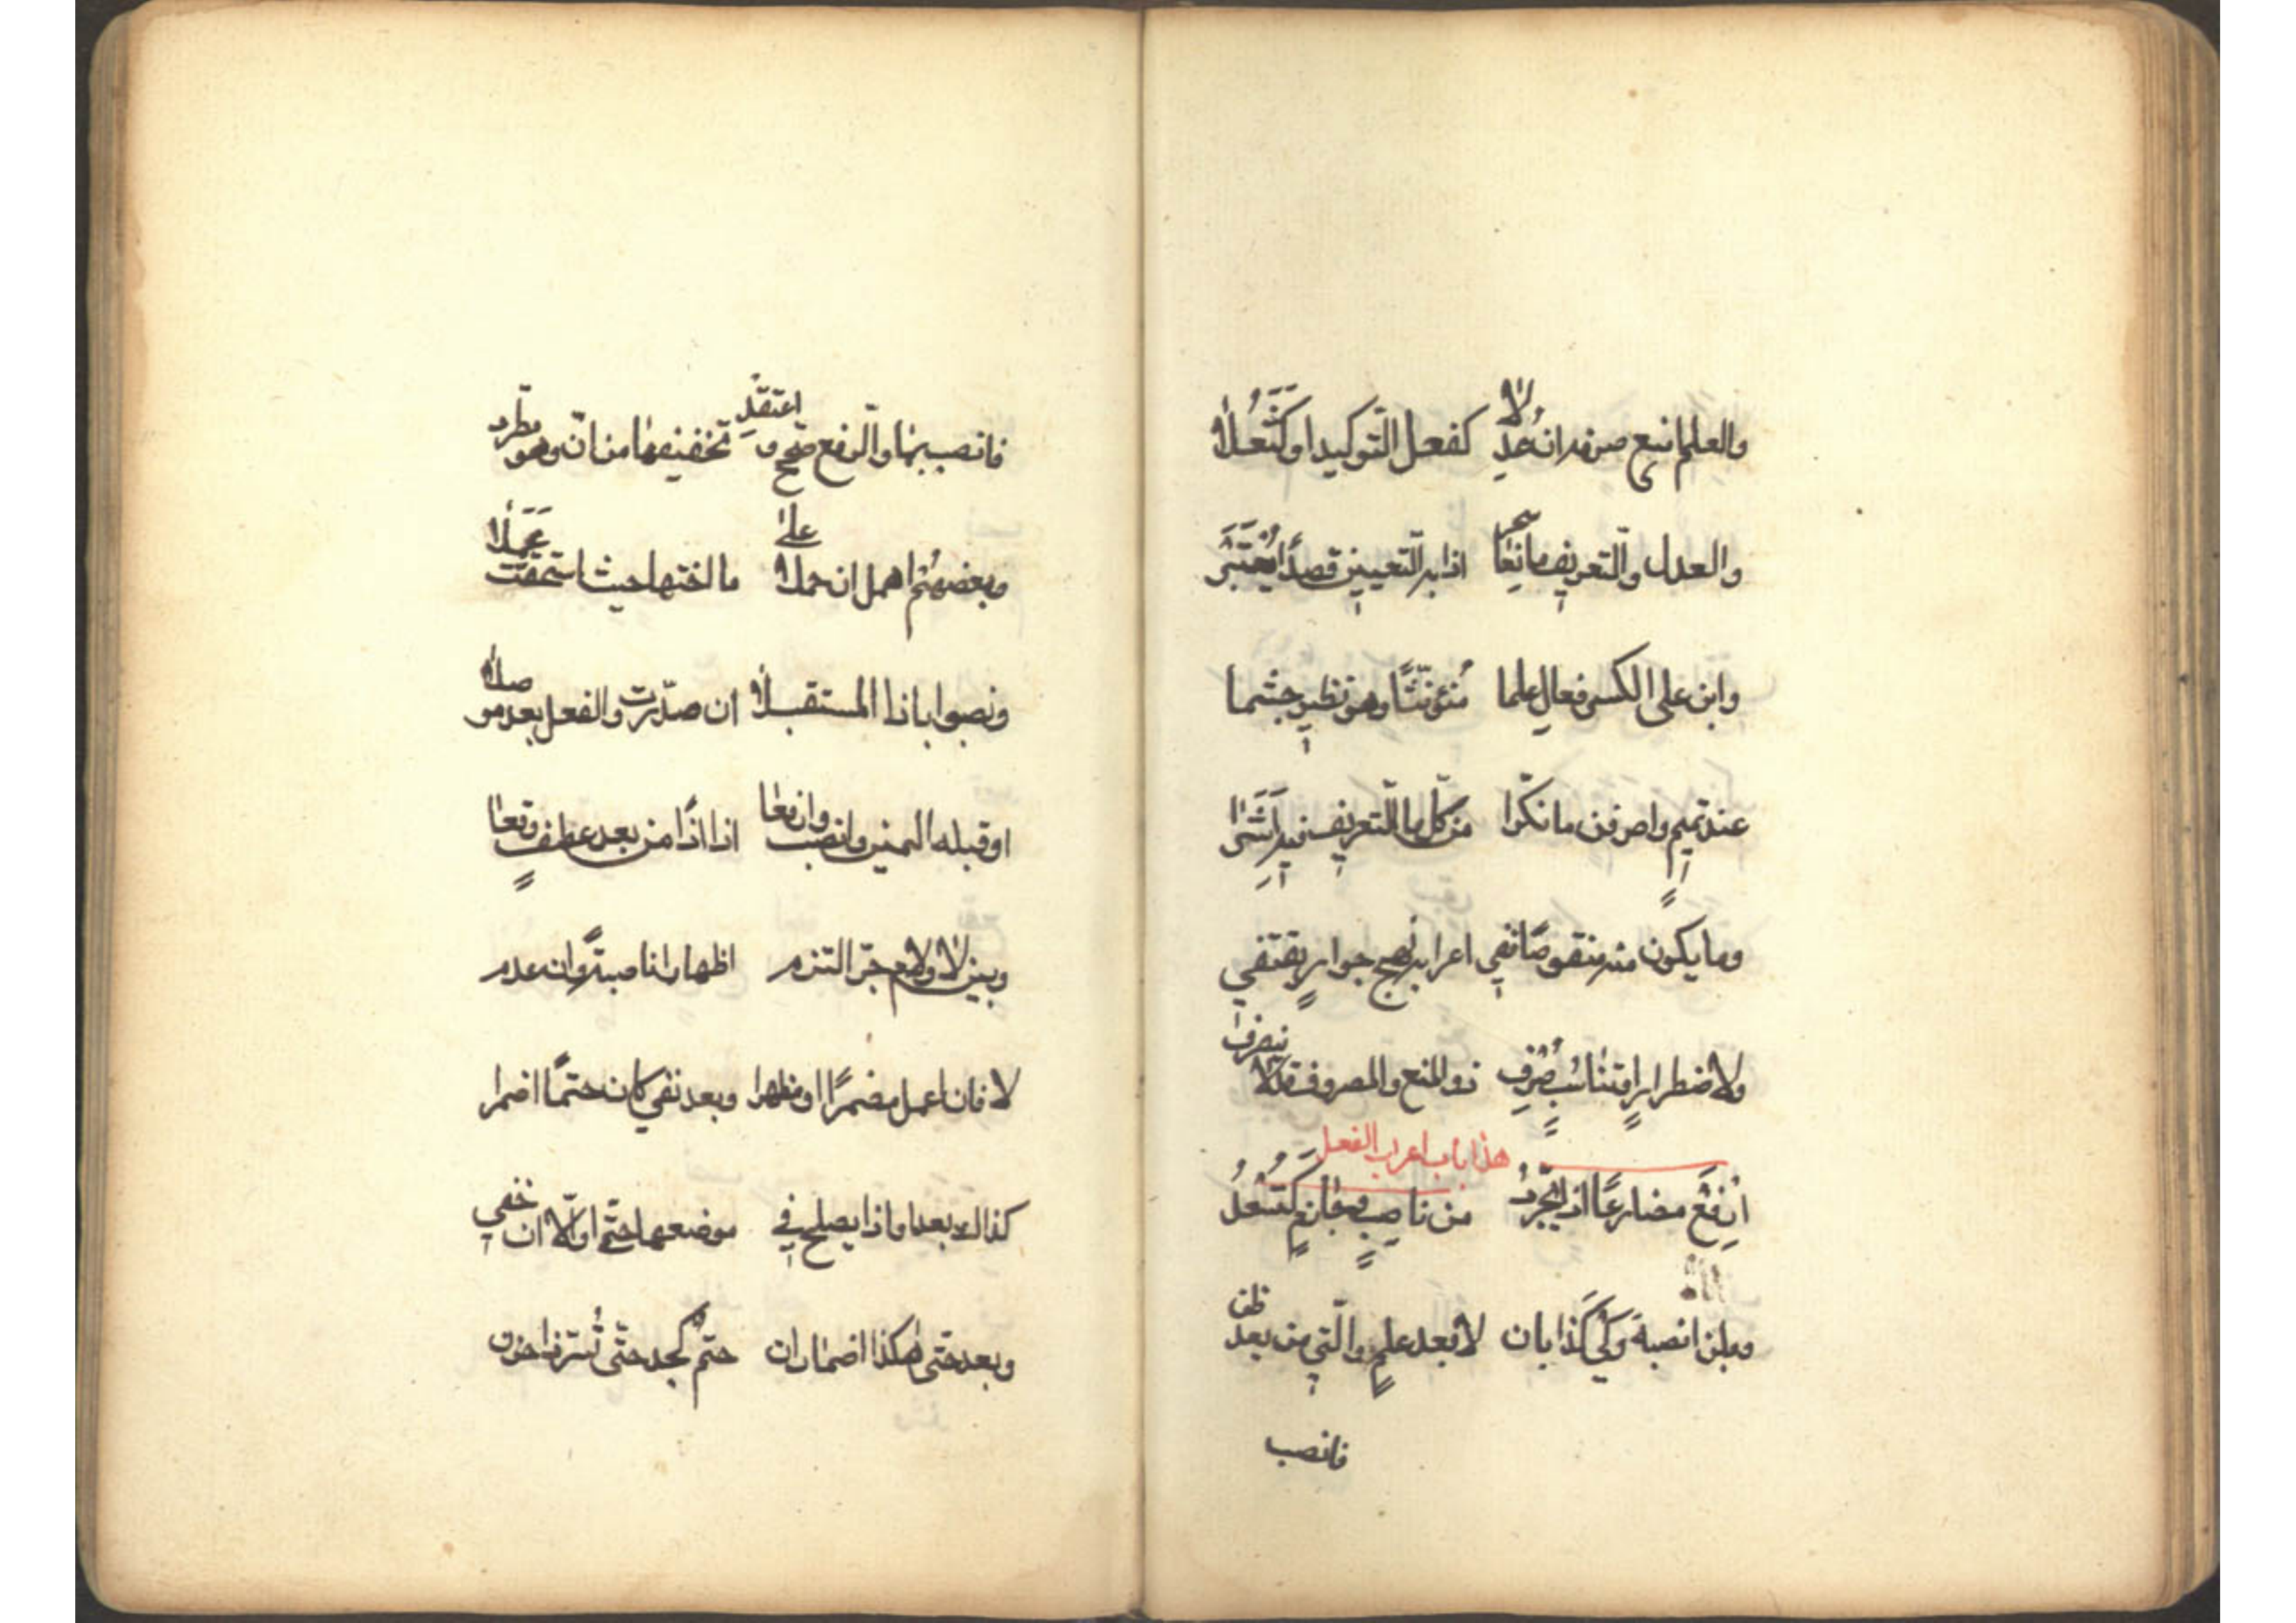 والعلم امنع صرفه ان عدلا كفعل التوكيد او كثعلا
والعدل والتعريف مانعا سحر اذا به التعيين قصدا يعتبر
وابن على الكسر فعال علما مُئونّثًا وهو نظير جشما
عند تميم واصرفن ما نكّرا من كل ما التعريف فيه اثرا
وما يكون منه منقوصا ففي اعرابه نهج جوار يقتفي
ولاضطرار او تناسب صرف ذو المنع والمصروف قد لا ينصرف
هذا باب اعراب الفعل
ارفع مضارعًا اذا يجرد من ناصب وجازم كتسعد
وبلن انصبه وكي كذا بان لا بعد علم والتي من بعد ظن
فانصب
فانصب بها والرفع صحح واعتقد تخفيفها من انّ وهو مطرد
وبعضهم اهمل ان حملا على ما اختها حيث استحقت عملا
ونصبوا باذا المستقبلا ان صدّرت والفعل بعد موصلا
او قبله اليمين وانصب وارفعا اذا اذًا من بعد عطف وقعا
وبين لا ولام جرّ التزم اظهار ان ناصبةً وان عدم
لا فان اعمل مضمرًا او مظهرا وبعد نفي كان حتمًا اضمرا
كذاك بعد او اذا يصلح في موضعها حتّى او الّا ان خفي
وبعد حتى هكذا اضمار ان حتم كجد حتّى تُسَرّ ذا حزن